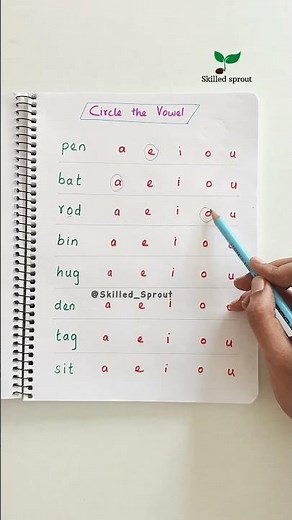 Skilled sprout
Circle the Vowel
pen a e i o u
bat a e i o u
rod a e i o u
bin a e i o u
hug a e i o u
@Skilled_Sprout
den a e i o u
tag a e i o u
sit a e i o u